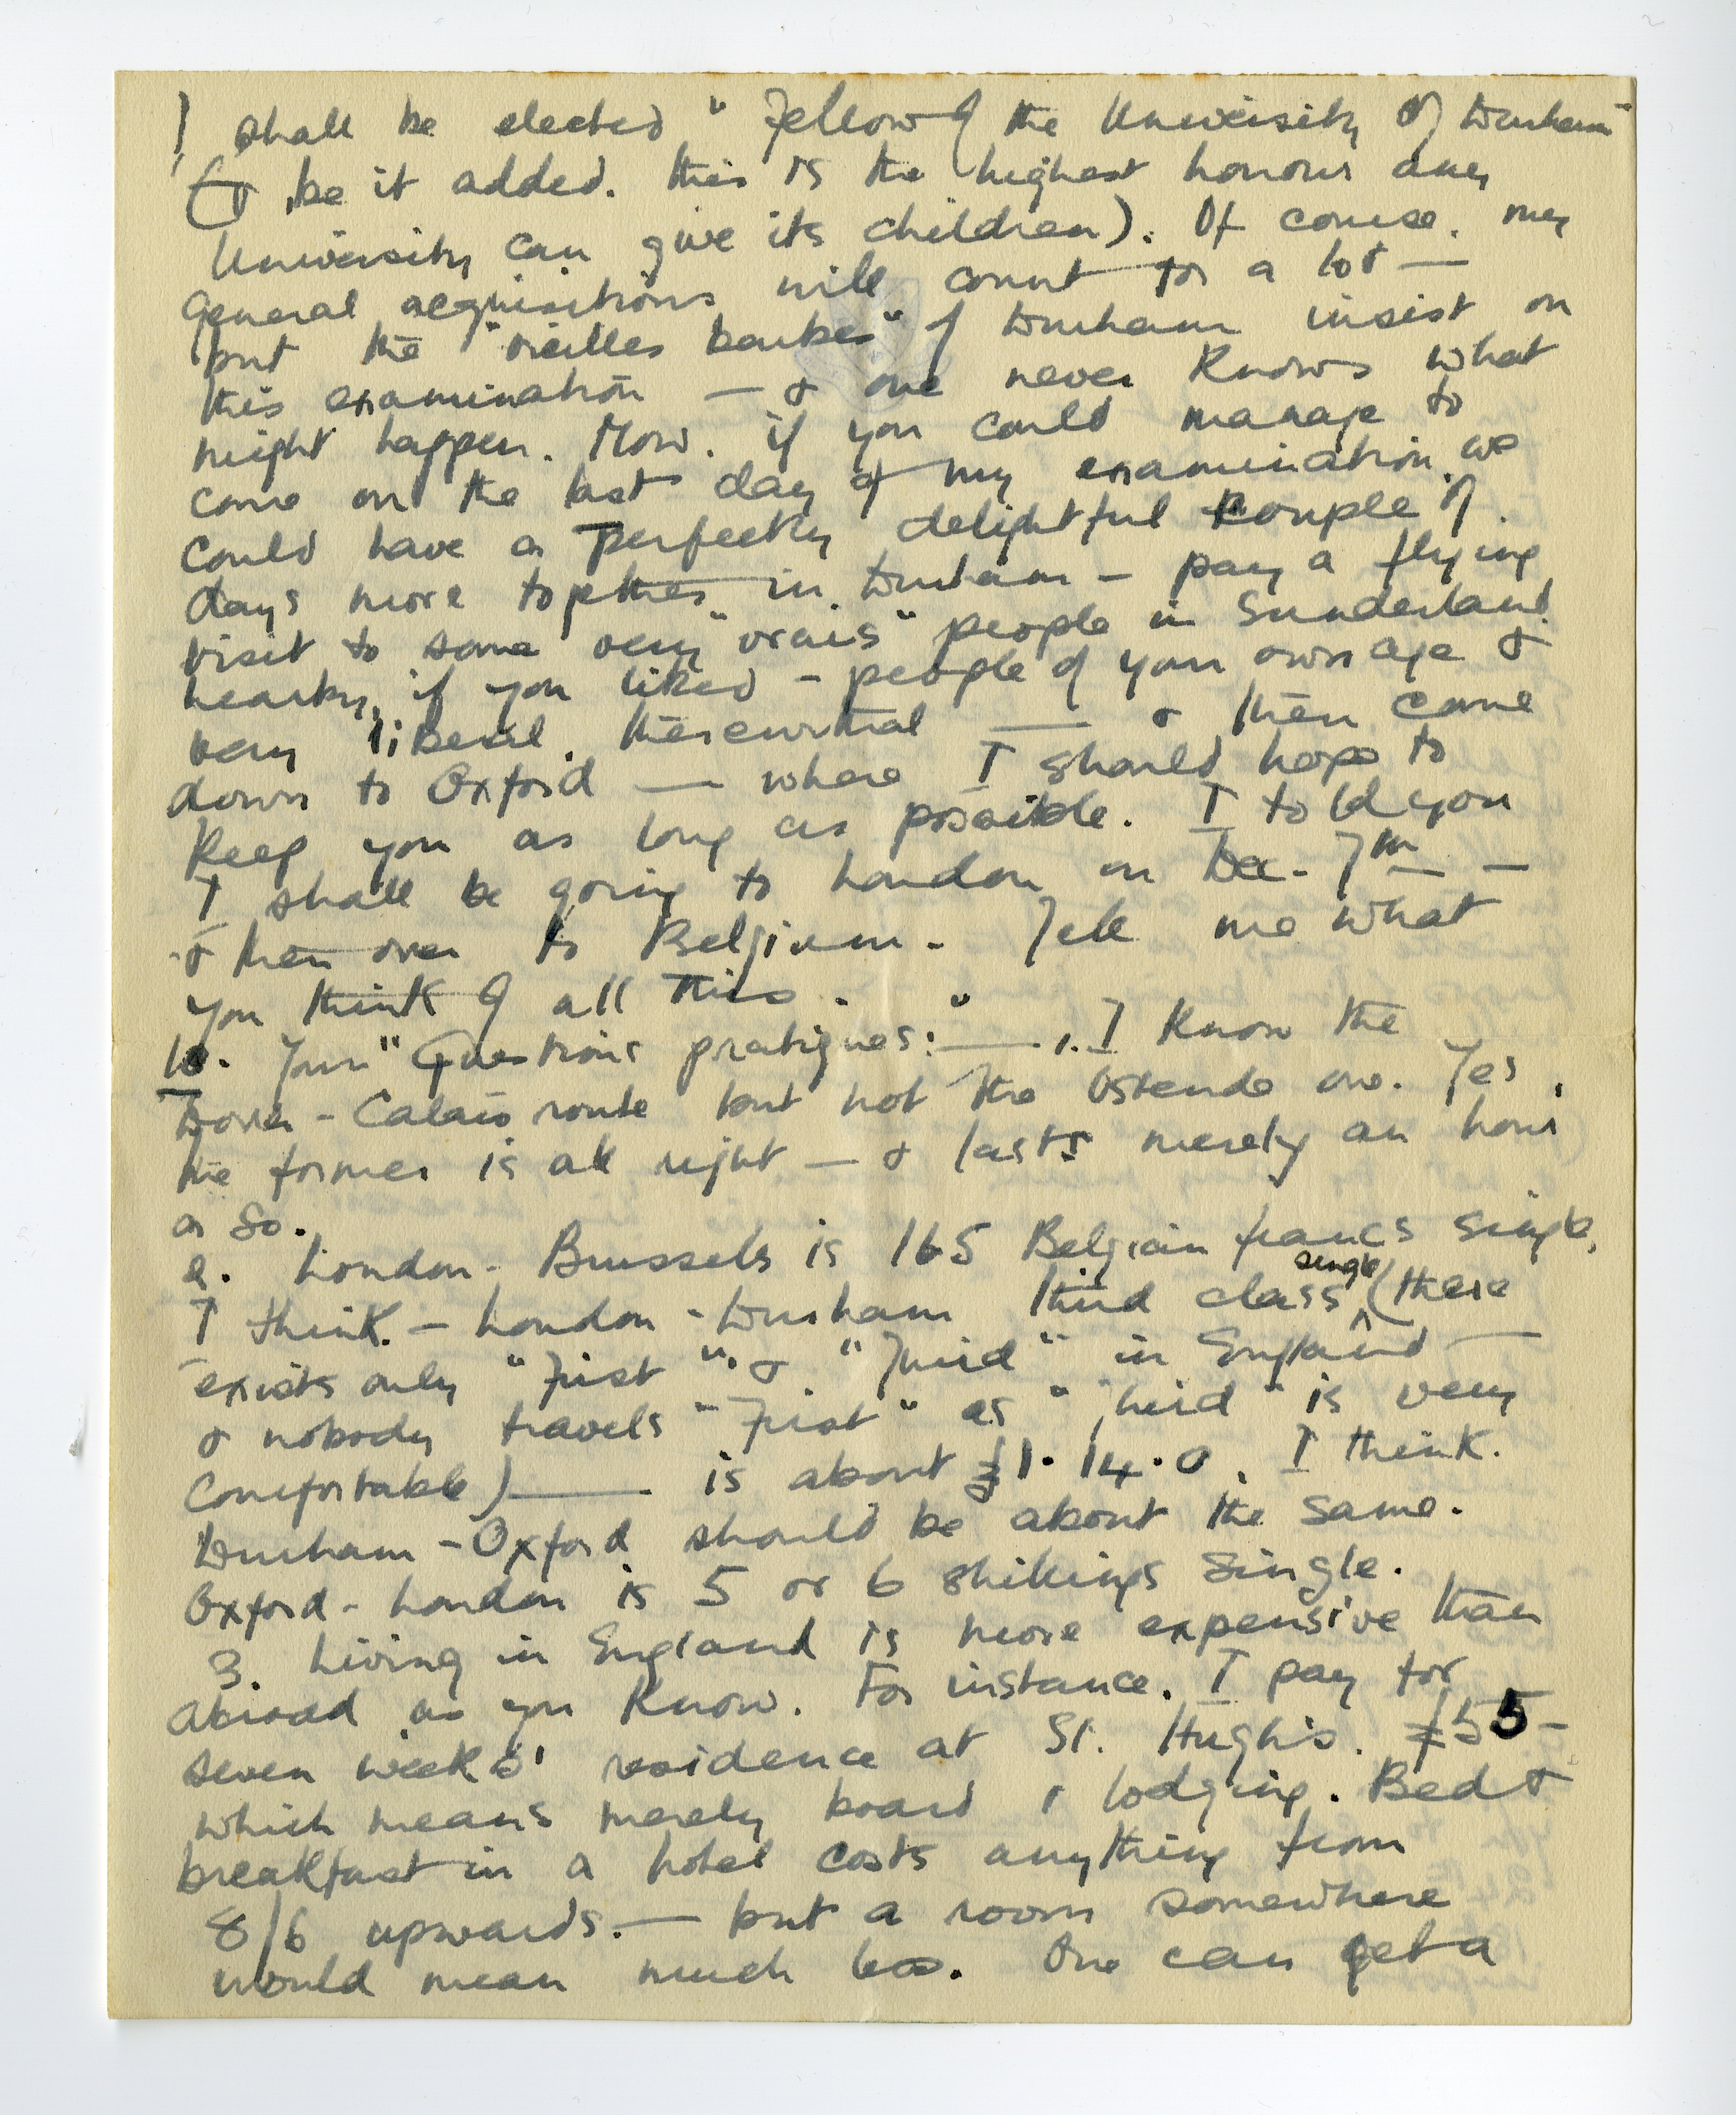 I shall be elected "Fellow of the University of Durham"
(& be it added, this is the highest honour any
University can give its children). Of course, my
general acquisitions will count for a lot —
but the "vieilles barbes" of Durham insist on
this examination — & one never knows what
might happen. Now, if you could manage to
come on the last day of my examination, we
could have a perfectly delightful couple of
days more together in Durham – pay a flying
visit to some very "vrais" people in Sunderland
nearby, if you liked – people of your own age &
very liberal, therewithal — & then come
down to Oxford — where I should hope to
keep you as long as possible. I told you
I shall be going to London on Dec. 7th —
& then over to Belgium. Tell me what
you think of all this.
10. Your "Questions pratiques:" — 1. I know the
Dover - Calais route but not the Ostende one. Yes,
the former is all right — & lasts merely an hour
or so.
2. London - Brussels is 165 Belgian francs single,
I think. – London - Durham third class single (there
exists only "First" & "Third" in England —
& nobody travels "First" as "third" is very
comfortable) — is about £1. 14. 0, I think.
Durham - Oxford should be about the same.
Oxford - London is 5 or 6 shillings single.
3. Living in England is more expensive than
abroad as you know. For instance, I pay for
seven weeks' residence at St. Hugh's, £55 –
which means merely board & lodging. Bed &
breakfast in a hotel costs anything from
8/6 upwards. — but a room somewhere
would mean much less. One can get a